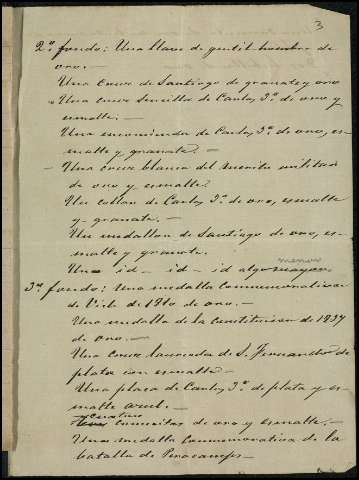 3
2º fondo: Una llave de gentil hombre de
oro.—
Una cruz de Santiago de granate y oro
Una cruz sencilla de Carlos 3º de oro y
esmalte.—
Una encomienda de Carlos 3º de oro, es-
malte y granate.—
— Una cruz blanca del merito militar
de oro y esmalte
Un collar de Carlos 3º de oro, esmalte
y granate.—
Un medallon de Santiago de oro, es-
malte y granate.
menor
Un id— id— id algo mayor
3er fondo: Una medalla conmemorativa
de de 1840 de oro.—
Una medalla de la constitucion de 1837
de oro.—
Una cruz laureada de S. Fernando de
plata con esmalte—
Una placa de Carlos 3º de plata y es-
malte azul.—
cuatro
crucitas de oro y esmalte.—
Una medalla conmemorativa de la
batalla de Peracamps—